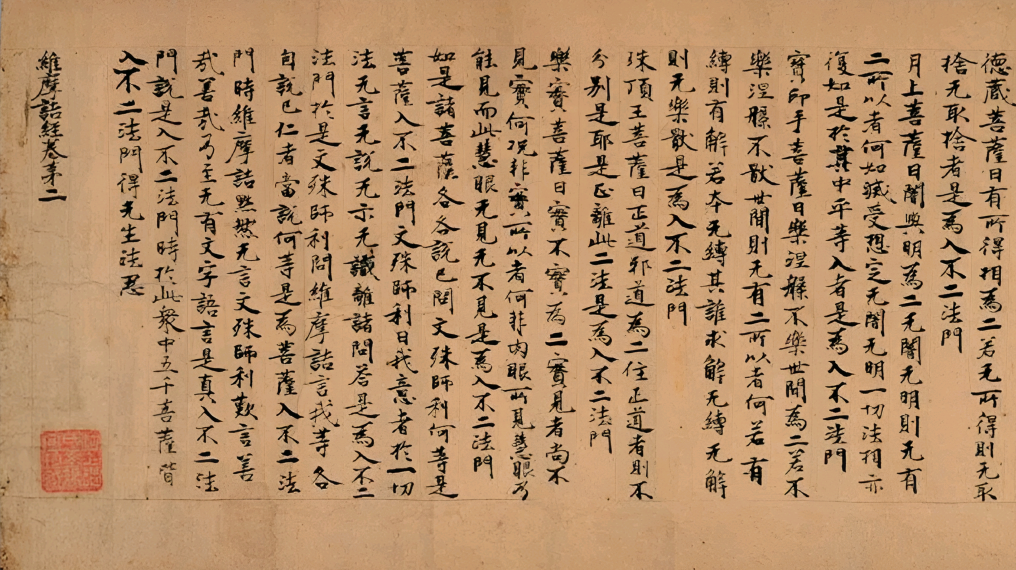 德藏菩薩曰有所得相為二若无所得則无取
捨无取捨者是為入不二法門
月上菩薩曰闇與明為二无闇无明則无有
二所以者何如滅受想定无闇无明一切法相亦
復如是於其中平等入者是為入不二法門
寶印手菩薩曰樂涅槃不樂世間為二若不
樂涅槃不猒世間則无有二所以者何若有
縛則有解若本无縛其誰求解无縛无解
則无樂猒是為入不二法門
珠頂王菩薩曰正道邪道為二住正道者則不
分別是耶是正離此二法是為入不二法門
樂實菩薩曰實不實為二實見者尚不
見實何况非實所以者何非肉眼所見慧眼乃
能見而此慧眼无見无不見是為入不二法門
如是諸菩薩各各說已問文殊師利何等是
菩薩入不二法門文殊師利曰我意者於一切
法无言无說无示无識離諸問答是為入不二
法門於是文殊師利問維摩詰言我等各
自說已仁者當說何等是為菩薩入不二法
門時維摩詰默然无言文殊師利歎言善
哉善哉乃至无有文字語言是真入不二法
門說是入不二法門時於此衆中五千菩薩皆
入不二法門得无生法忍
維摩詰經卷第二